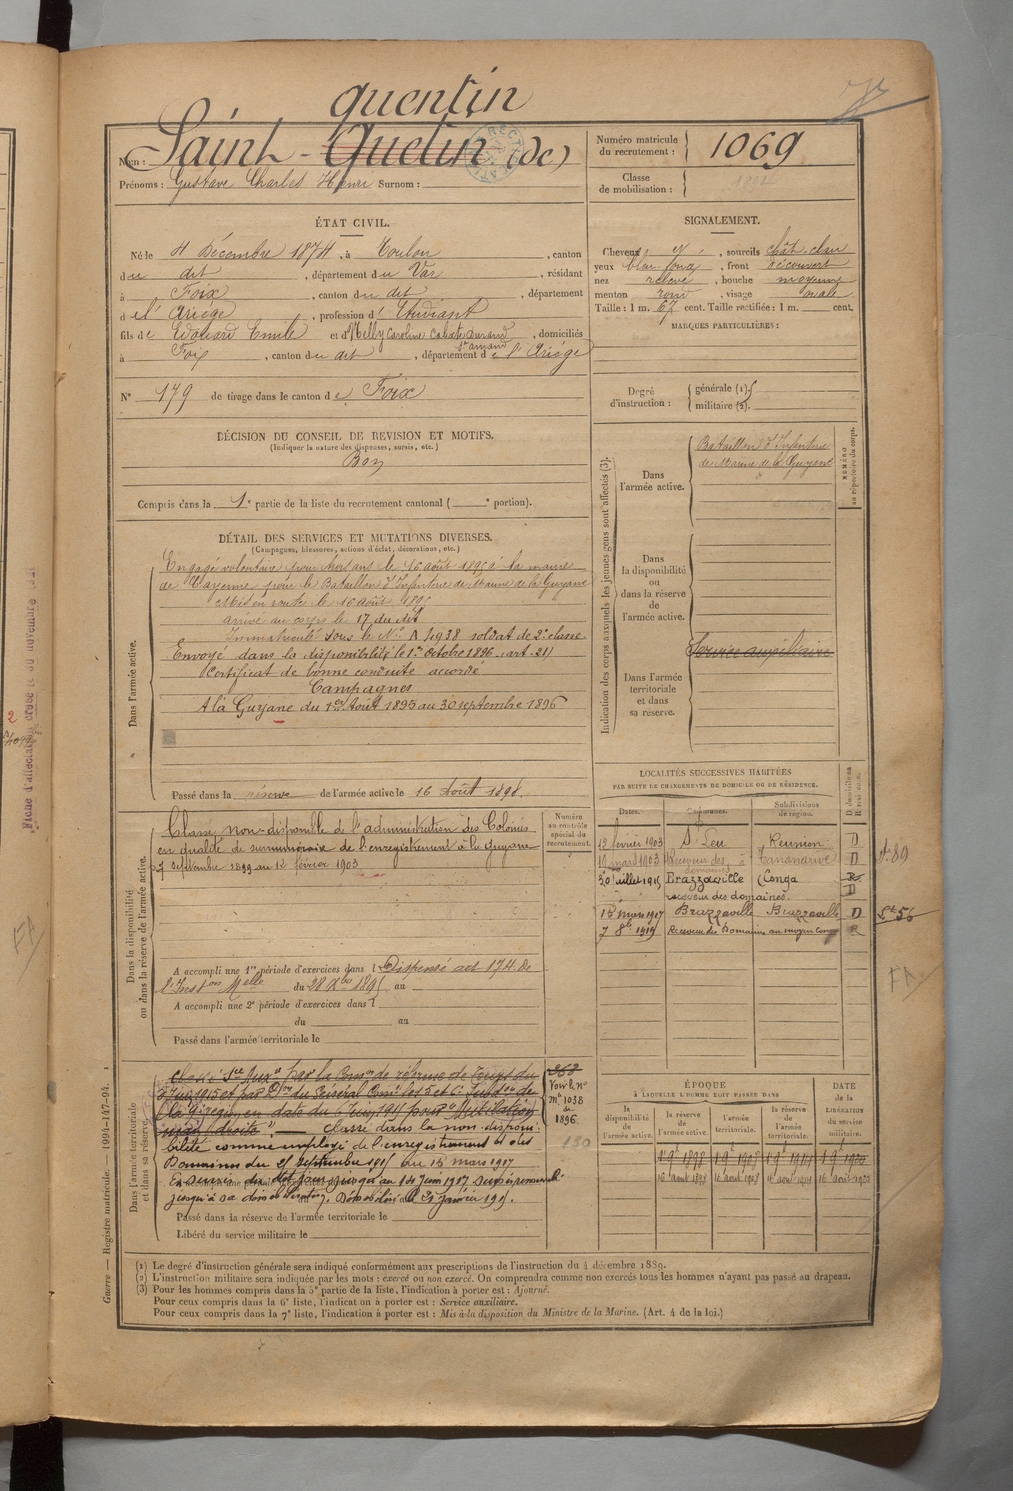 quentin
Nom : Saint-Quetin (de)
Prénoms : Gustave Charles Henri Surnom :
Numéro matricule du recrutement : 1069
Classe de mobilisation :
ÉTAT CIVIL.
Né le 4 Décembre 1874, à Toulon, canton
du dit, département du Var, résidant
à Foix, canton du dit, département
d e l'Ariège, profession d' Etudiant
fils de Edouard Emile et d' Nelly Caroline Durand St Amand, domiciliés
à Foix, canton du dit, département d e l'Ariège
N° 179 de tirage dans le canton d e Foix
SIGNALEMENT.
Cheveux, sourcils chât. clair
yeux bleu foncé, front découvert
nez relevé, bouche moyenne
menton rond, visage ovale
Taille : 1 m. 67 cent. Taille rectifiée : 1 m. cent.
MARQUES PARTICULIÈRES :
Degré d'instruction : générale (1). militaire (2).
DÉCISION DU CONSEIL DE REVISION ET MOTIFS.
(Indiquer la nature des dispenses, sursis, etc.)
Bon
Compris dans la 1e partie de la liste du recrutement cantonal ( e portion).
DÉTAIL DES SERVICES ET MUTATIONS DIVERSES.
(Campagnes, blessures, actions d'éclat, décorations, etc.)
Dans l'armée active.
Engagé volontaire pour trois ans le 16 août 1895 à la mairie
de Cayenne, pour le Bataillon d'Infanterie de Marine de la Guyane
Mis en route le 16 août 1895
arrivé au corps le 17 du dit
Immatriculé sous le N° A 4938 soldat de 2e classe
Envoyé dans la disponibilité le 1er octobre 1896 (art. 21)
Certificat de bonne conduite accordé
Campagnes
A la Guyane du 1er Août 1895 au 30 septembre 1896
Passé dans la réserve de l'armée active le 16 Août 1898.
Indication des corps auxquels les jeunes gens sont affectés (3).
Dans l'armée active.
Bataillon d'Infanterie
de Marine de la Guyane
NUMÉRO au répertoire du corps.
Dans la disponibilité ou dans la réserve de l'armée active.
Service auxiliaire
Dans l'armée territoriale et dans sa réserve.
Dans la disponibilité ou dans la réserve de l'armée active.
Classé non-disponible de l'administration des Colonies
en qualité de surnuméraire de l'enregistrement à la Guyane
7 septembre 1899 au 12 février 1903
A accompli une 1re période d'exercices dans l Dispensé art 174 de
l'Inston Melle du 28 Xbre 1895 au
A accompli une 2e période d'exercices dans l
du au
Passé dans l'armée territoriale le
Numéro au contrôle spécial du recrutement.
LOCALITÉS SUCCESSIVES HABITÉES
PAR SUITE DE CHANGEMENTS DE DOMICILE OU DE RÉSIDENCE.
Dates. Communes. Subdivisions de région. D domicile ou R résidence.
12 février 1903 St Leu Réunion D
19 mars 1903 Receveur des domaines à Tananarive D
20 juillet 1915 Brazzaville Congo R
receveur des domaines. D
15 mars 1917 Brazzaville Brazzaville D
7 8bre 1919 Receveur des Domaines au moyen Congo R
Dans l'armée territoriale et dans sa réserve.
Classé Sce Auxre par la Comon de réforme de
3 Juin 1915 et par Don du Général Comt les 5 et 6e Subdons de
la région en date du Juin 1915 pour "Mutilation
main droite". — Classé dans la non-disponi-
bilité comme employé de l'enregistrement et des
Domaines du 25 septembre 1915 au 15 mars 1917
jusqu'à sa démobilisation. Démobilisé le 25 janvier 1919.
Passé dans la réserve de l'armée territoriale le
Libéré du service militaire le
368
Voir le n°
mle 1038
de
1896
ÉPOQUE
À LAQUELLE L'HOMME DOIT PASSER DANS
la disponibilité de l'armée active. la réserve de l'armée active. l'armée territoriale. la réserve de l'armée territoriale. DATE de la LIBÉRATION du service militaire.
1 9e 1898 1 9e 1908 1 9e 1914 1 9e 1920
16 août 1898 16 août 1908 16 août 1914 16 août 1920
(1) Le degré d'instruction générale sera indiqué conformément aux prescriptions de l'instruction du 4 décembre 1889.
(2) L'instruction militaire sera indiquée par les mots : exercé ou non exercé. On comprendra comme non exercés tous les hommes n'ayant pas passé au drapeau.
(3) Pour les hommes compris dans la 5e partie de la liste, l'indication à porter est : Ajourné.
Pour ceux compris dans la 6e liste, l'indication à porter est : Service auxiliaire.
Pour ceux compris dans la 7e liste, l'indication à porter est : Mis à la disposition du Ministre de la Marine. (Art. 4 de la loi.)
Guerre — Registre matricule. — (994-147-94.
FA
FA